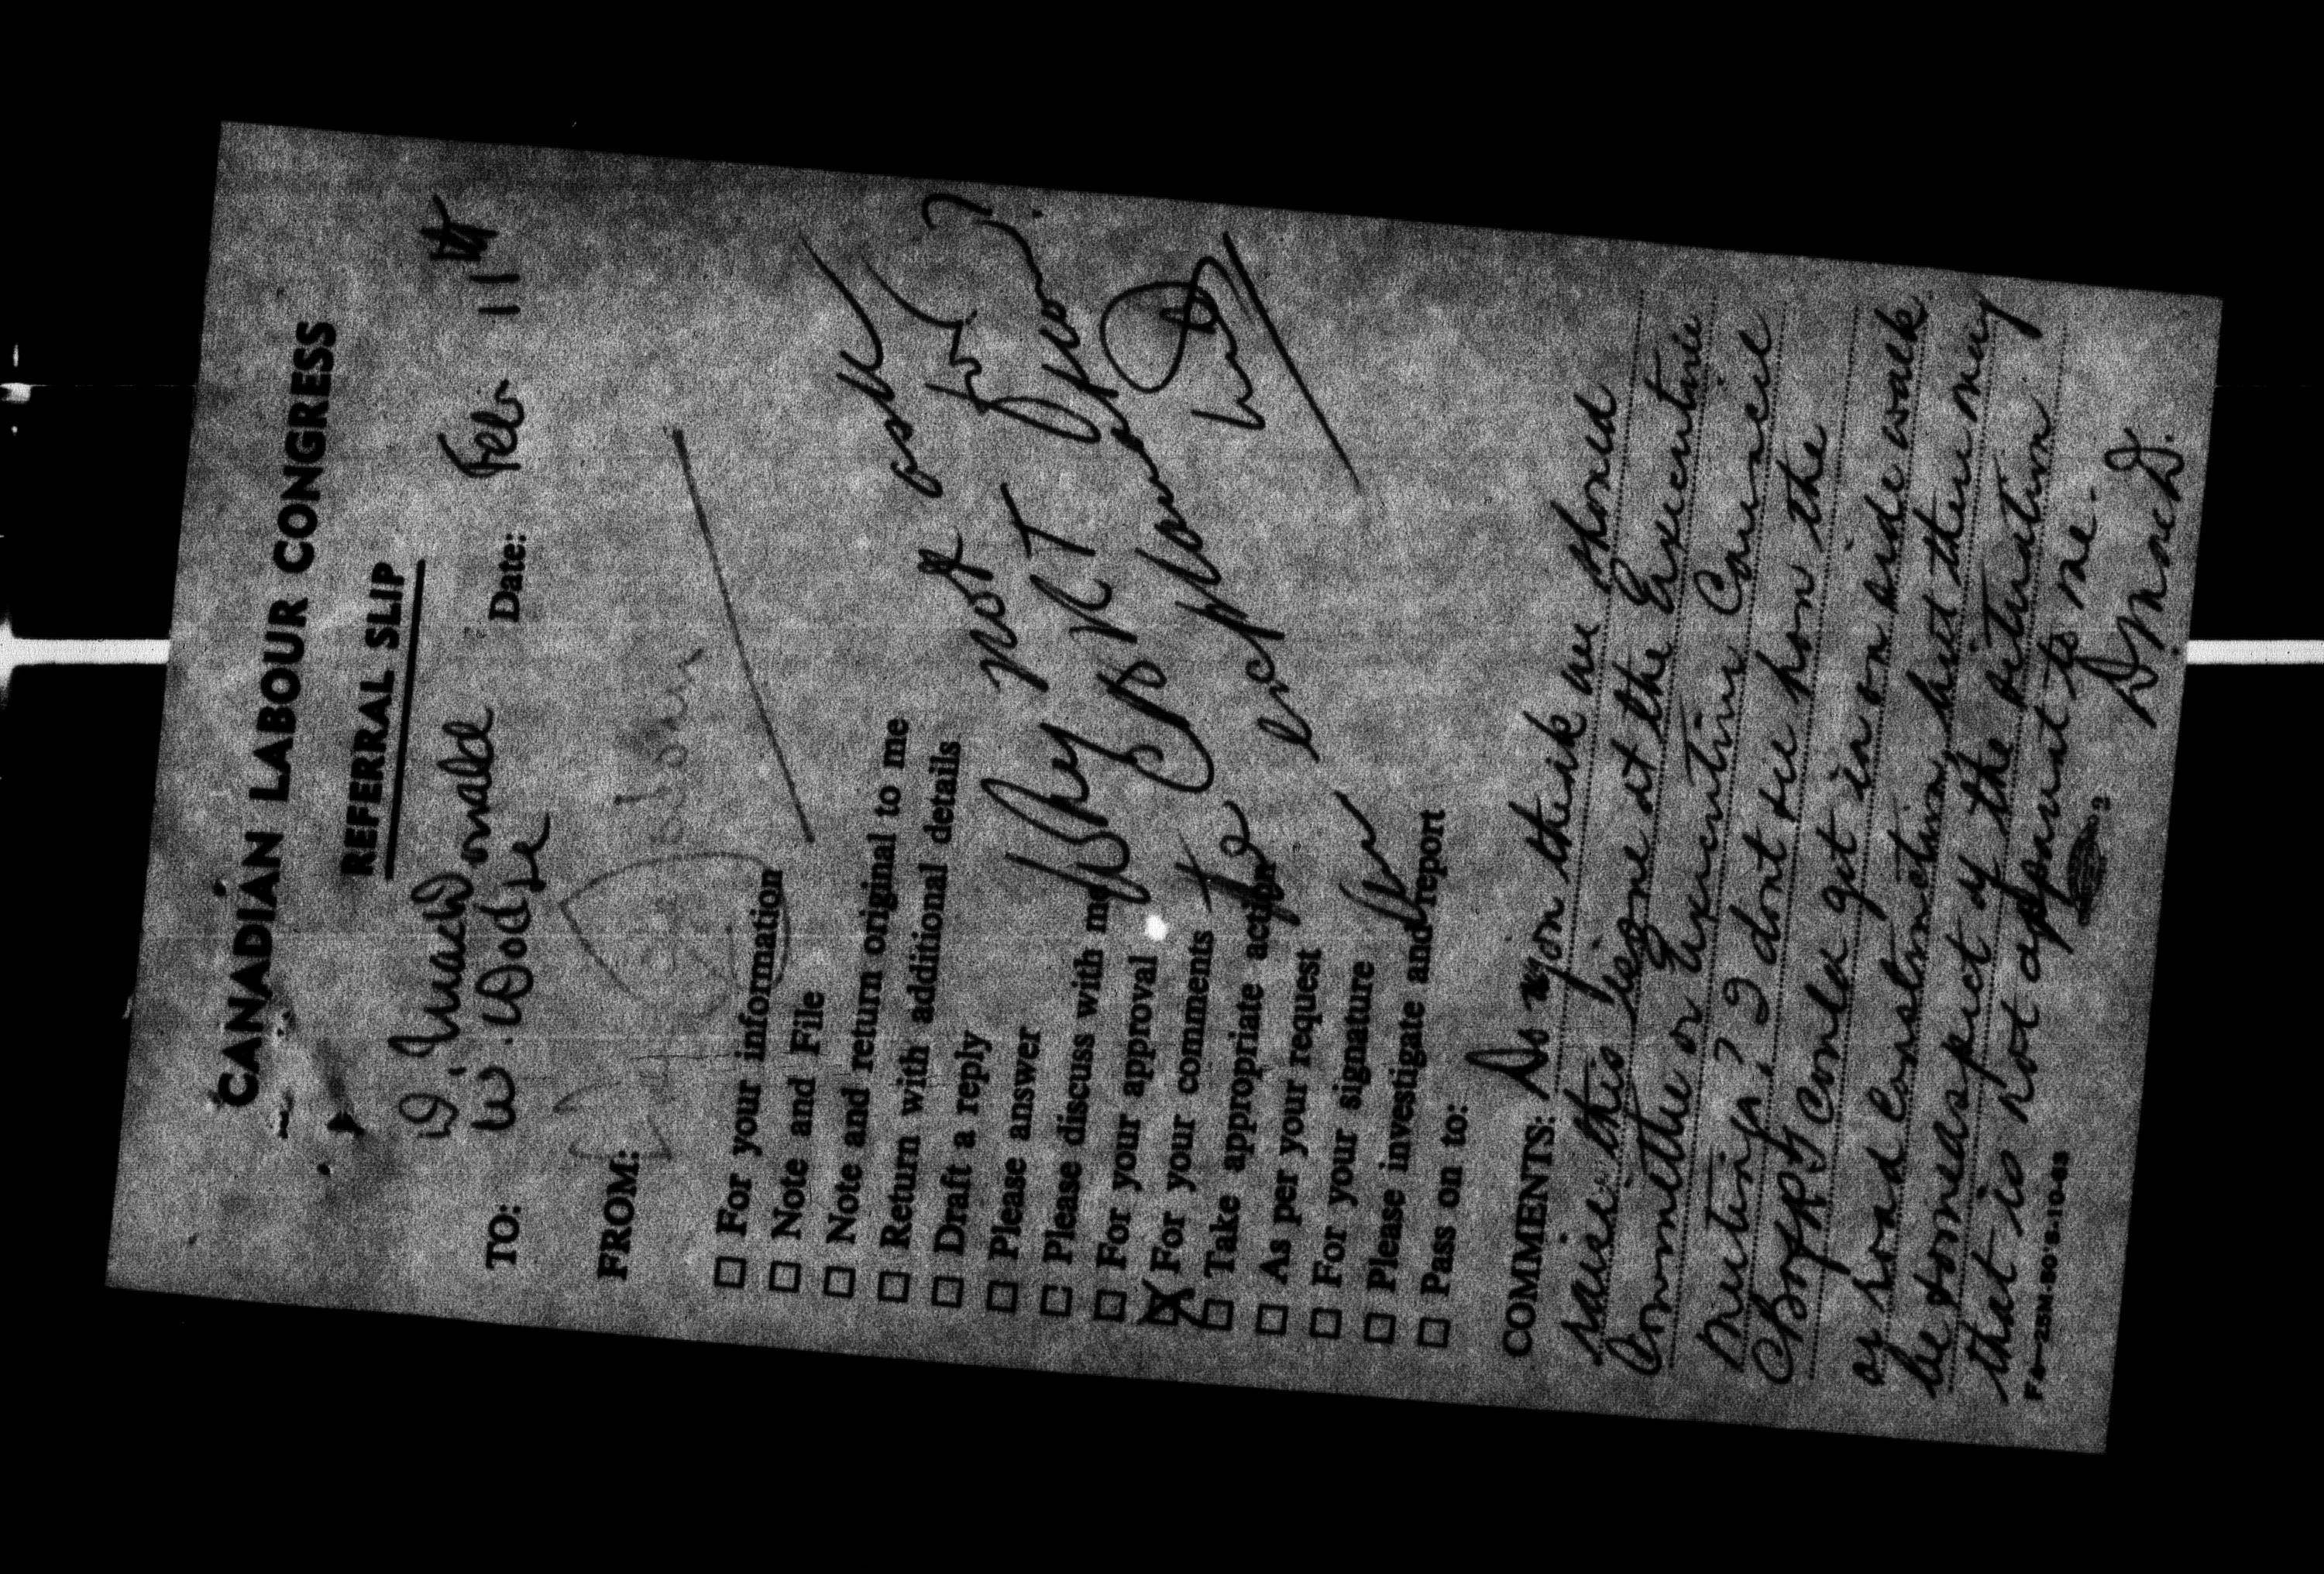 CANADIAN LABOUR CONGRESS
REFERRAL SLIP
TO: D. MacDonald Date: Feb 11th
W. Dodge
FROM:
☐ For your information
☐ Note and File
☐ Note and return original to me
☐ Return with additional details
☐ Draft a reply
☐ Please answer
☐ Please discuss with me
☐ For your approval
☒ For your comments
☐ Take appropriate action
☐ As per your request
☐ For your signature
☐ Please investigate and report
☐ Pass on to:
Why not ask
CBRT
to explain
COMMENTS: Do you think we should
raise this issue at the Executive
Committee or Executive Council
meeting? I dont see how the
CBofRT could get in on side walk
or road construction, but there may
be some aspect of the situation
that is not apparent to me.
D MacD.
F6-25M-50'S-10-63
2